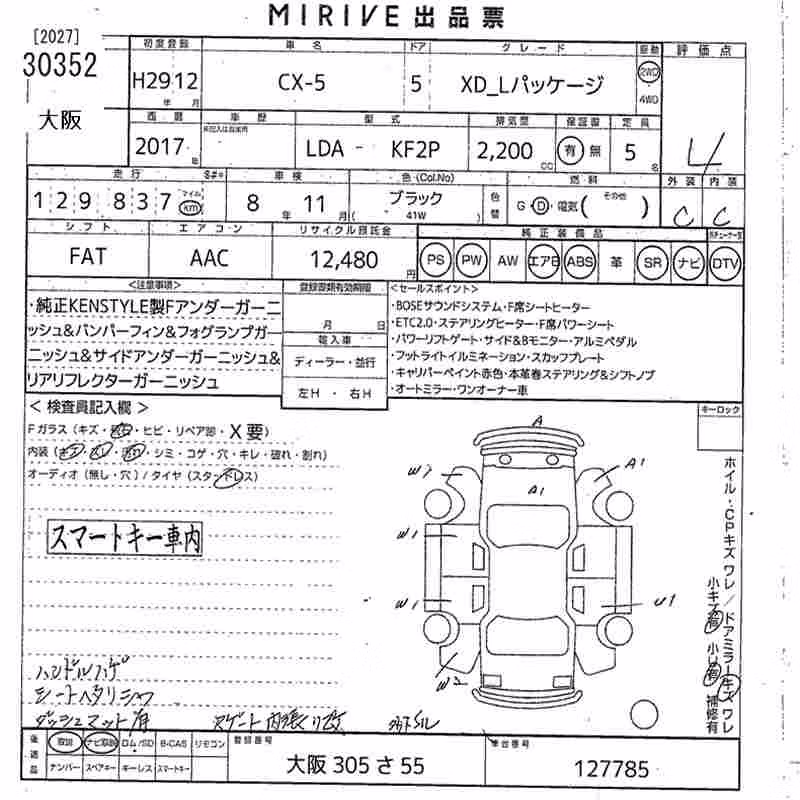 MIRIVE出品票
[2027]
30352
大阪
初度登録 車名 ドア グレード 駆動 評価点
H29 12 CX-5 5 XD_Lパッケージ 2WD
年 月 4WD
西暦 車歴 型式 排気量 保証書 定員
未記入は自家用
2017 年 LDA - KF2P 2,200 CC 有 無 5 名 4
走行 S#* 車検 色(Col.No) 燃料 外装 内装
129,837 マイル km 8年 11月( ブラック 41W ) 色替 G・D・電気( その他 ) C C
シフト エアコン リサイクル預託金 純正装備品
FAT AAC 12,480円 PS PW AW エアB ABS 革 SR ナビ DTV
<注意事項>
・純正KENSTYLE製Fアンダーガーニ
ッシュ&バンパーフィン&フォグランプガー
ニッシュ&サイドアンダーガーニッシュ&
リアリフレクターガーニッシュ
登録書類有効期限
月 日
輸入車
ディーラー・並行
左H・右H
<セールスポイント>
・BOSEサウンドシステム・F席シートヒーター
・ETC2.0・ステアリングヒーター・F席パワーシート
・パワーリフトゲート・サイド&Bモニター・アルミペダル
・フットライトイルミネーション・スカッフプレート
・キャリパーペイント赤色・本革巻ステアリング&シフトノブ
・オートミラー・ワンオーナー車
キーロック
<検査員記入欄>
Fガラス(キズ・飛石・ヒビ・リペア跡・X要)
内装(キズ・スレ・汚れ・シミ・コゲ・穴・キレ・破れ・割れ)
オーディオ(無し・穴)/タイヤ(スタッドレス)
スマートキー車内
A
W2 A1
A1
W1
W1 U1
W2
ホイル・CPキズワレ/ドアミラーキズワレ
小キズ有 小U有 補修有
ハンドルハゲ
シートヘタリシワ
ダッシュマット有
後送品 取説 ナビ取説 ロム/SD B-CAS リモコン 登録番号 車台番号
ナンバー スペアキー キーレス スマートキー 大阪 305 さ 55 127785